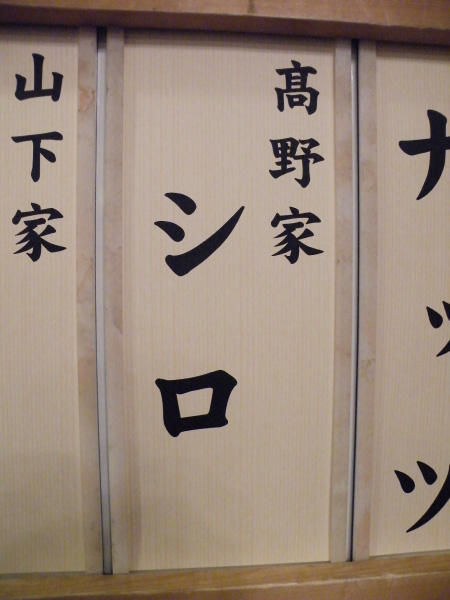 ナッツ
髙野家
シロ
山下家